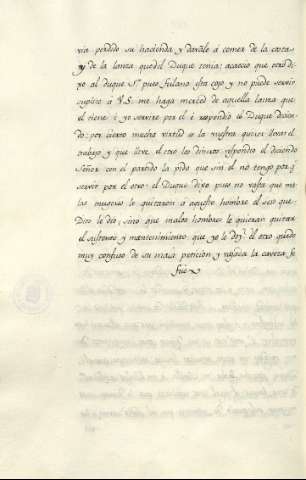 via perdido su hacienda y davale á comer de la caza
y de la lanza quedel Duque tenia: acaecio que otro di-
xo al duque Sr. pues fulano esta cojo y no puede servir
suplico á V.S. me haga merced de aquella lanza que
el tiene é yo servire por el é respondio el Duque dicien-
do: por cierto mucha virtud es la vuestra querer llevar el
trabajo y que lleve el otro los dineros respondio el diciendo
Señor con el partido la pido que sin el no tengo por q.
servir por el otro: el Duque dixo pues no basta que me-
las mugeres le quitaron á aqueste hombre el seso que
Dios le dio, sino que malos hombres le quieran quitar
el sustento y mantenimiento que yo le doy: el otro quedo
muy confuso de su mala peticion y vajola la caveza se
fue